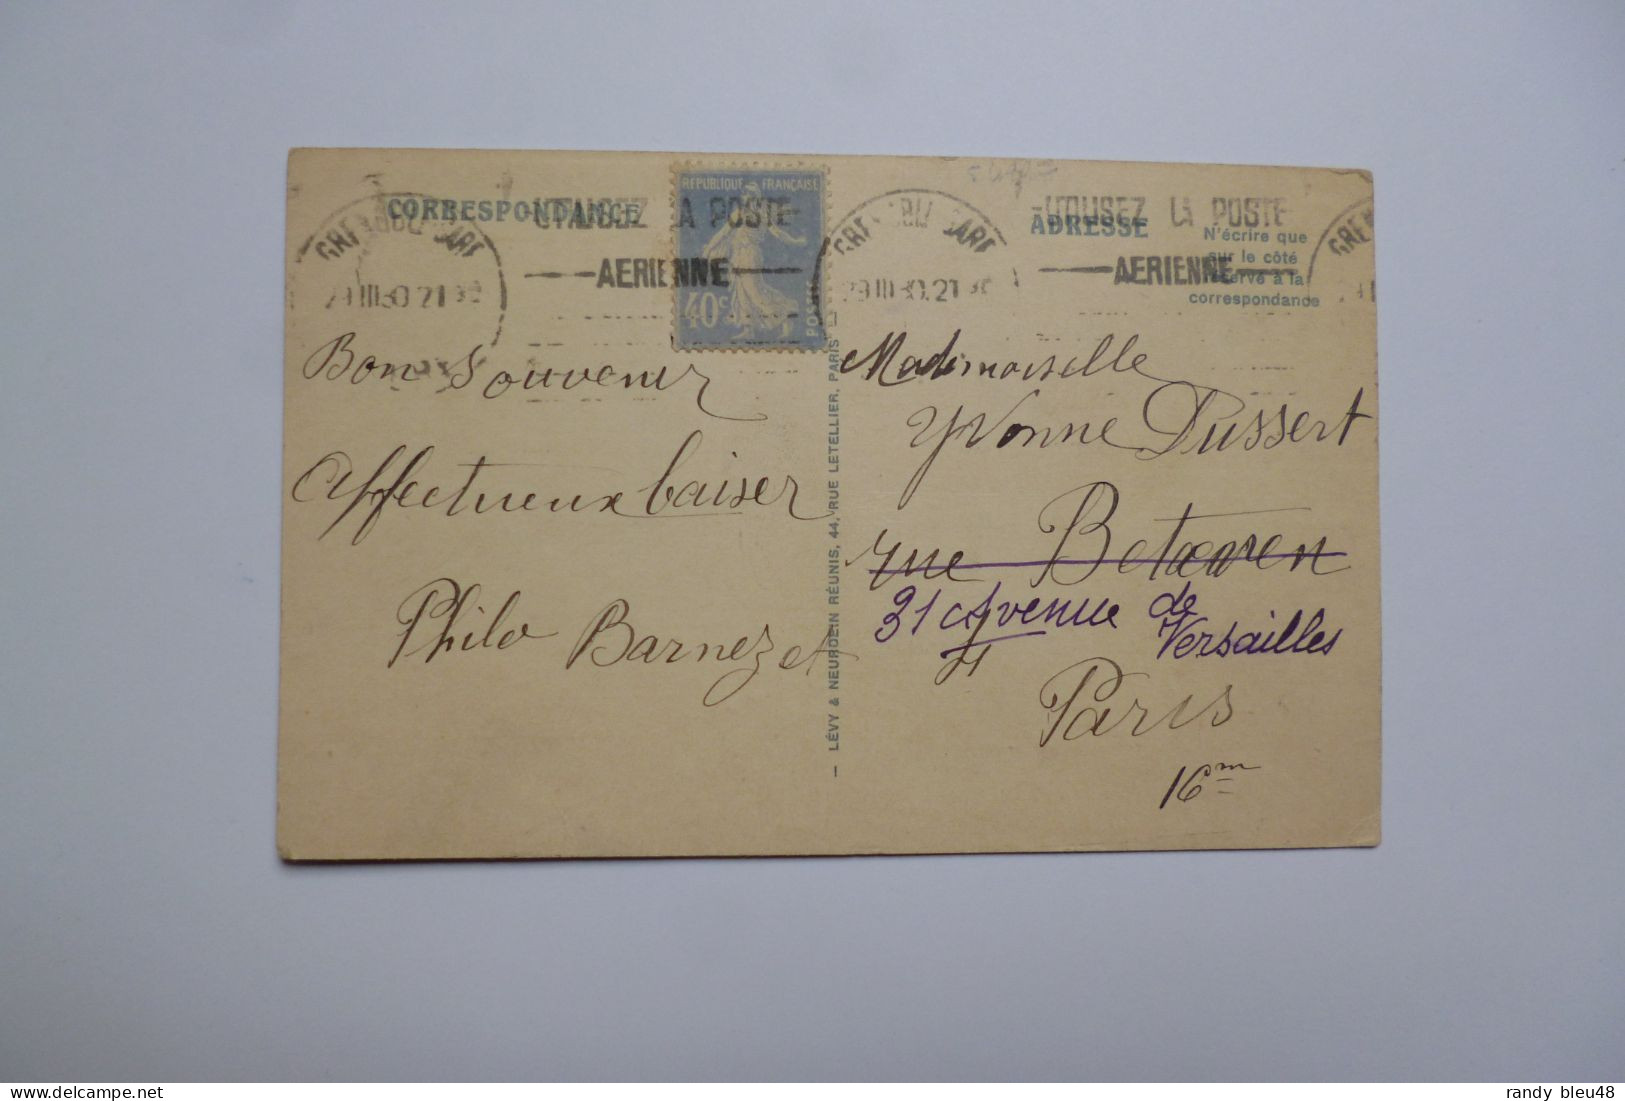 CORRESPONDANCE
UTILISEZ LA POSTE
AERIENNE
GRENOBLE GARE
29 III 30. 21
REPUBLIQUE FRANÇAISE
40c
POSTES
Bon Souvenir
Affectueux baiser
Philo Barnezet
— LÉVY & NEURDEIN RÉUNIS, 44, RUE LETELLIER, PARIS
GRENOBLE GARE
29 III 30. 21
ADRESSE
N'écrire que
sur le côté
réservé à la
correspondance
-UTILISEZ LA POSTE
AERIENNE
Mademoiselle
Yvonne Dussert
rue Betaeven
31 Avenue de
Versailles
Paris
16m
randy bleu48